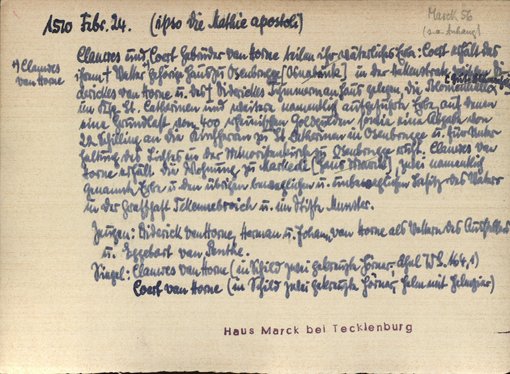 1510 Febr. 24. (ipso die Mathie apostoli)
Marck 56
(s.a. Anhang)
Clauwes und Coert Gebrüder van Horne teilen ihr väterliches Erbe: Coert erhält das
*) Clauwes van Horne
ihrem † Vater gehörige Haus zu Osenbrugge [Osnabrück] in der Hakenstrate zwischen Di-
dericks van Horne u. des † Didericks Tymmerman Haus gelegen, die
im Ksp. St. Cathrinen und weitere namentlich aufgeführte Erbe, auf denen
eine Grundlast von 400 rheinischen Goldgulden sowie eine Abgabe von
22 Schilling an die Kirchherrn zu St. Cathrinen in Osenbrugge u. zur Unter-
haltung des Lichtes in der Minoritenkirche zu Osenbrugge ruht. Clauwes van
Horne erhält die Wohnung zu [Haus Marck], zwei namentlich
genannte Erbe u. den übrigen beweglichen u. unbeweglichen Besitz des Vaters
in der Grafschaft Tekenneborch u. im Stifte Munster.
Zeugen: Diderick van Horne, Herman u. Johann van Horne als Vettern des Ausstellers
u. Eggebart van
Siegel: Clauwes van Horne (in Schild zwei gekreuzte Hörner, Abgel WS. 164,1)
Coert van Horne (in Schild zwei gekreuzte Hörner, Helm mit Helmzier)
Haus Marck bei Tecklenburg